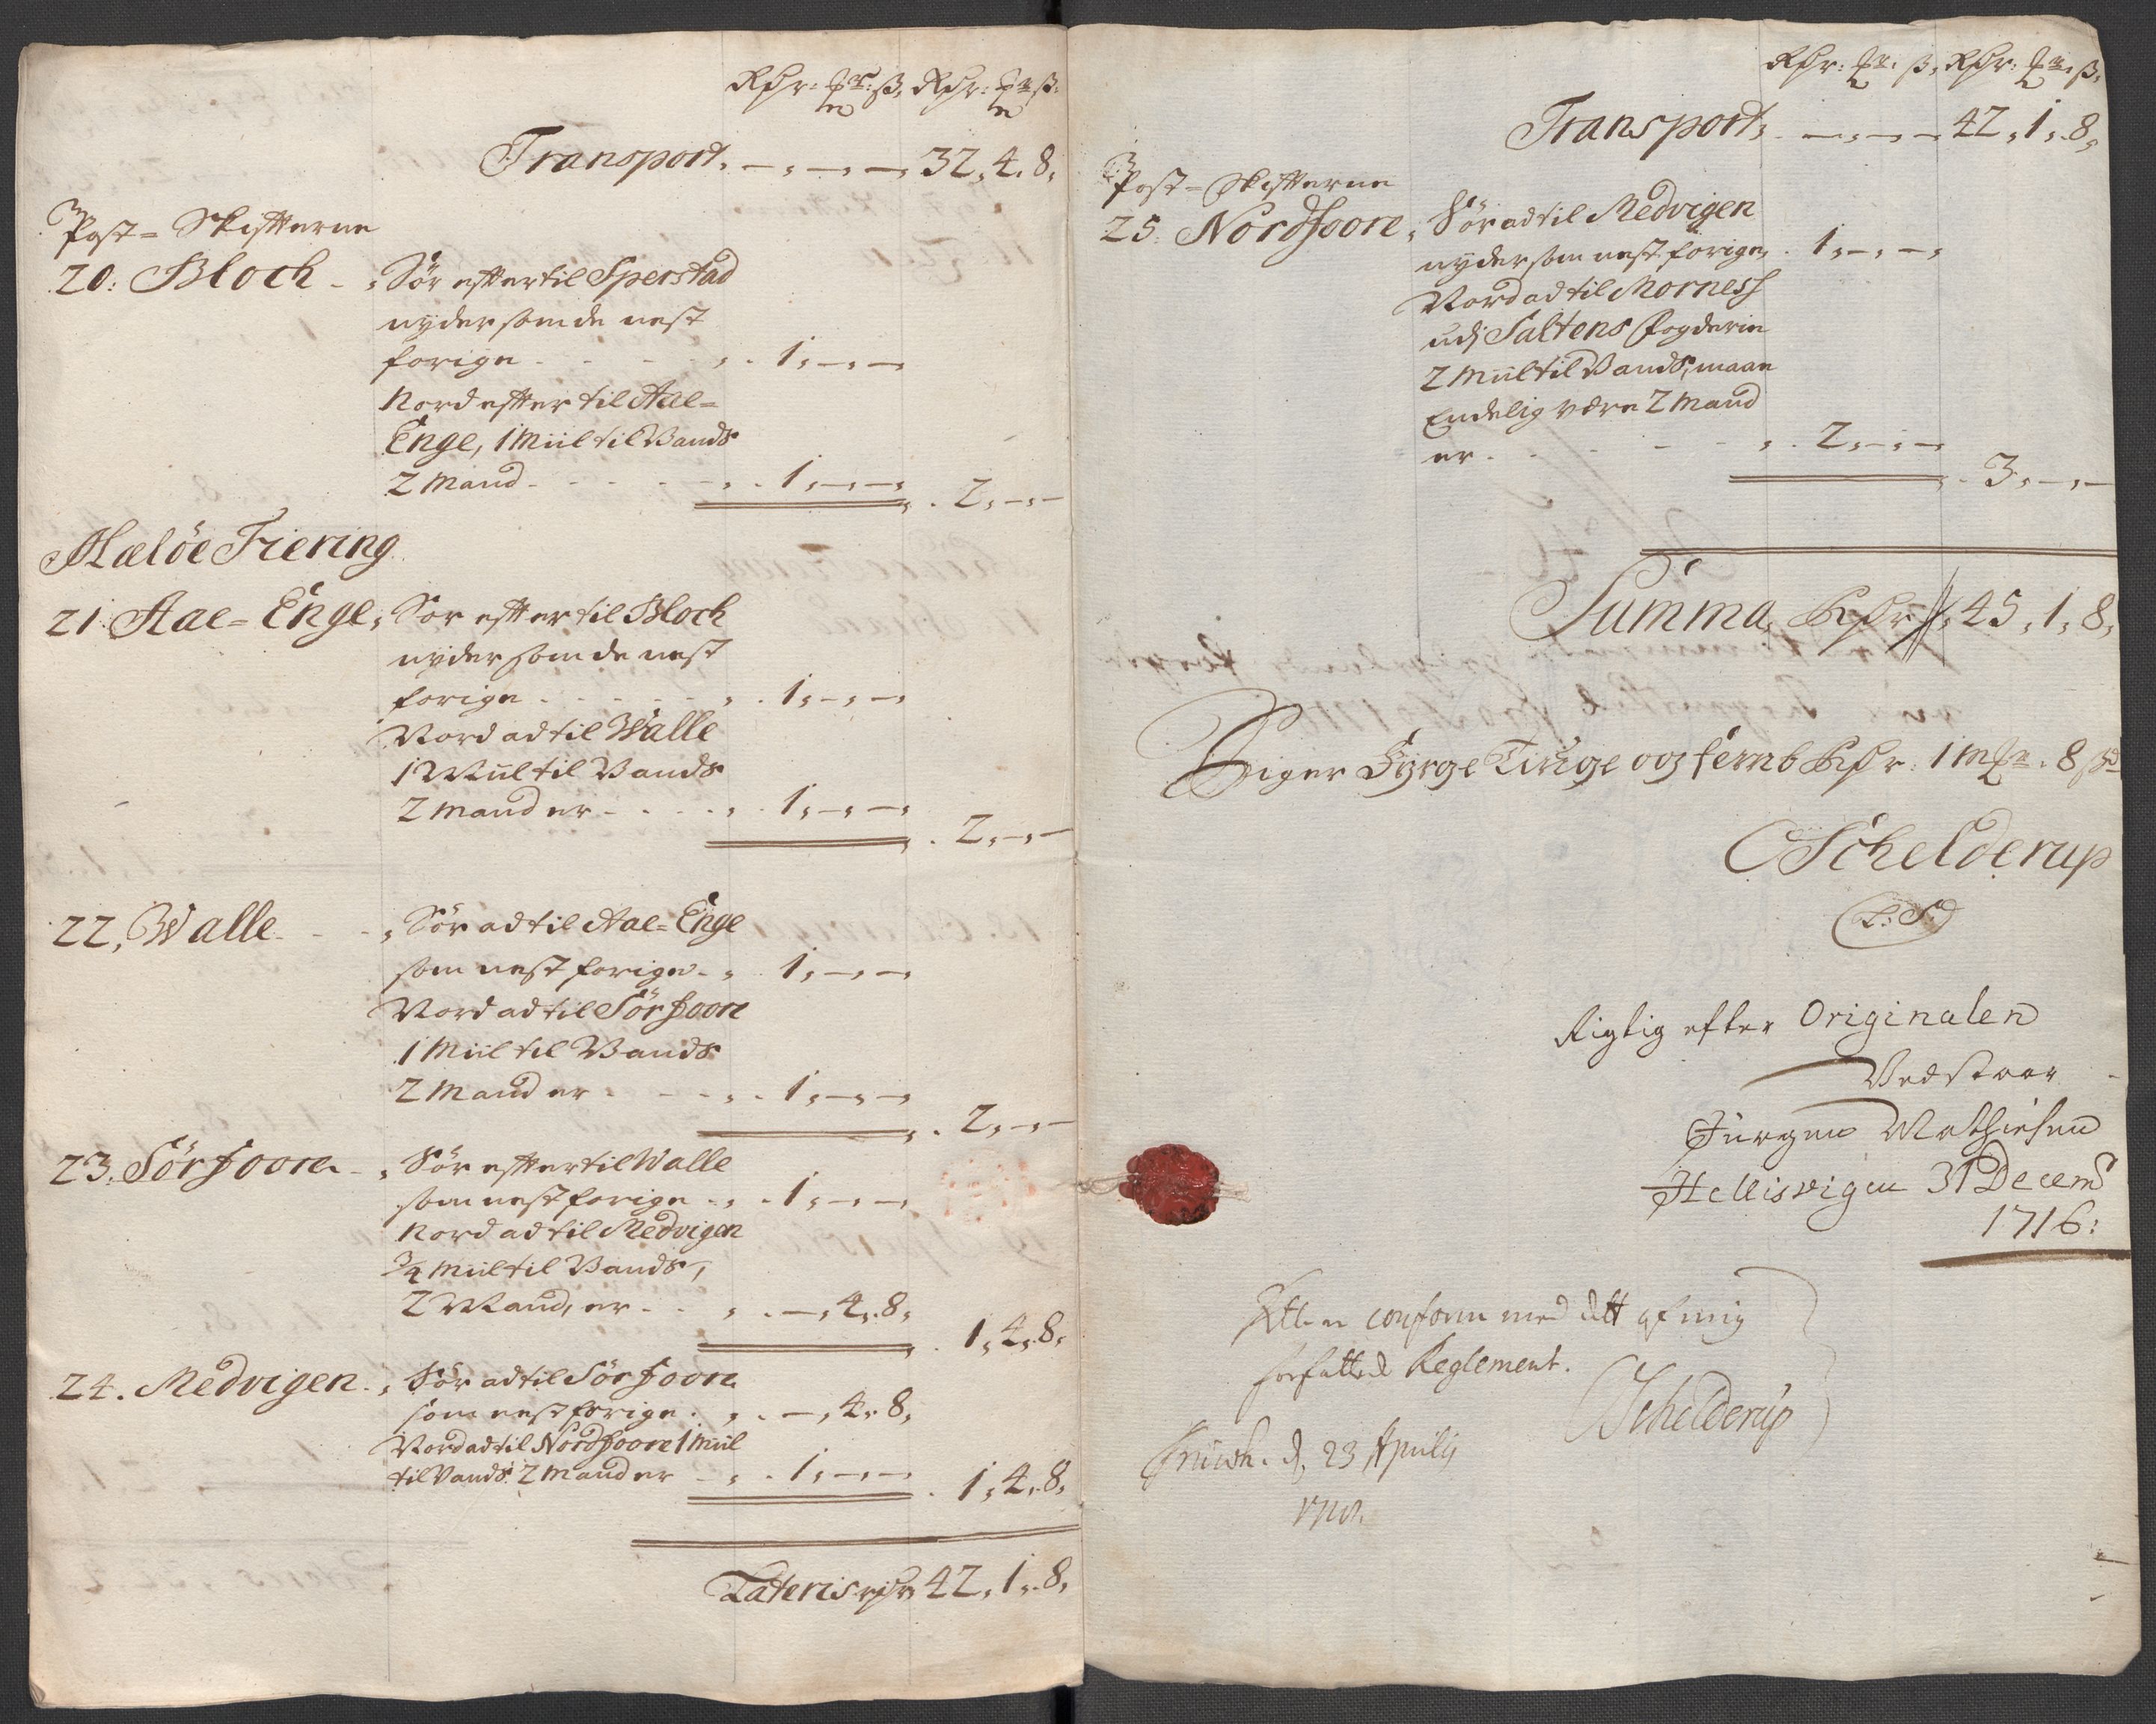 Rdr: mk: ß. Rdr: mk ß.
Transport, - , - , - 32, 4. 8,
Post-Skifterne
20: Bloch - , Sør effter til Sperstad
nyder som de nest
forige - - - - , . 1, -, -,
Nord effter til Aae-
Enge, 1 Miil til Vands
2 Mand - - - - , . 1, -, -,
2, -, -
Hæløe Fiering
21. Aae-Enge, Sør effter til Bloch
nyder som de nest
forige - - - - , . 1, -, -,
Nord ad til Walle
1 Miil til Vands
2 Mand er - - - , . 1, -, -,
2, -, -
22, Walle - - , Sør ad til Aae-Enge
som nest forige - , . 1, -, -,
Nord ad til Sørfoore
1 Miil til Vands
2 Mand er - - - , . 1, -, -,
2, -, -
23. Sørfoore - , Sør effter til Walle
som nest forige - , . 1, -, -,
Nord ad til Medvigen
3/4 Miil til Vands,
2 Mand, er - - , . -, 4, 8,
1, 4, 8,
24. Medvigen - , Sør ad til Sørfoore
som nest forige - , . -, 4, 8,
Nord ad til Nordfoore 1 Miil
til Vands 2 Mand er - , . 1, -, -,
1, 4, 8,
Lateris rdr 42, 1, 8,
Rdr: mk: ß, Rdr: mk, ß,
Transport, - , - , - 42, 1, 8,
Post-Skifterne
25. Nordfoore, Sør ad til Medvigen
nyder som nest forige, . 1, -, -,
Nord ad til Morness
udj Saltens Fogderie
2 Miil til Vands, maae
Endelig være 2 Mand
er - - - - , . 2, -, -,
3, -, -
Summa, Rdr 45, 1, 8,
Siger Fyrge Tiuge og femb Rdr. 1 mk. 8 ß
OSchelderup
L: S:
Rigtig efter Originalen
Vedstaar
Jürgen Mathiesen
Hellisvigen 31 Decemb
1716:
Att er conform med dett af mig
forfattede Reglement.
OSchelderup
d. 23 Aprilij